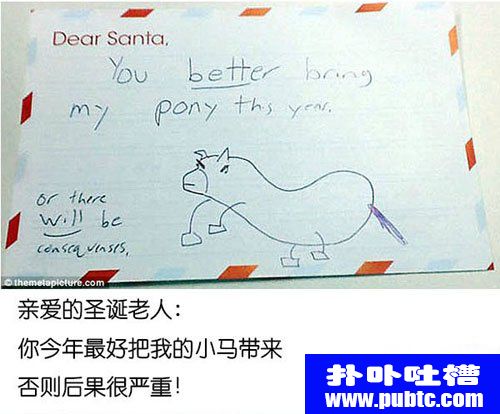 Dear Santa,
You better bring
my pony ths year.
or there
will be
consequenses.
© themetapicture.com
亲爱的圣诞老人：
你今年最好把我的小马带来
否则后果很严重！
扑卟吐槽
www.pubtc.com